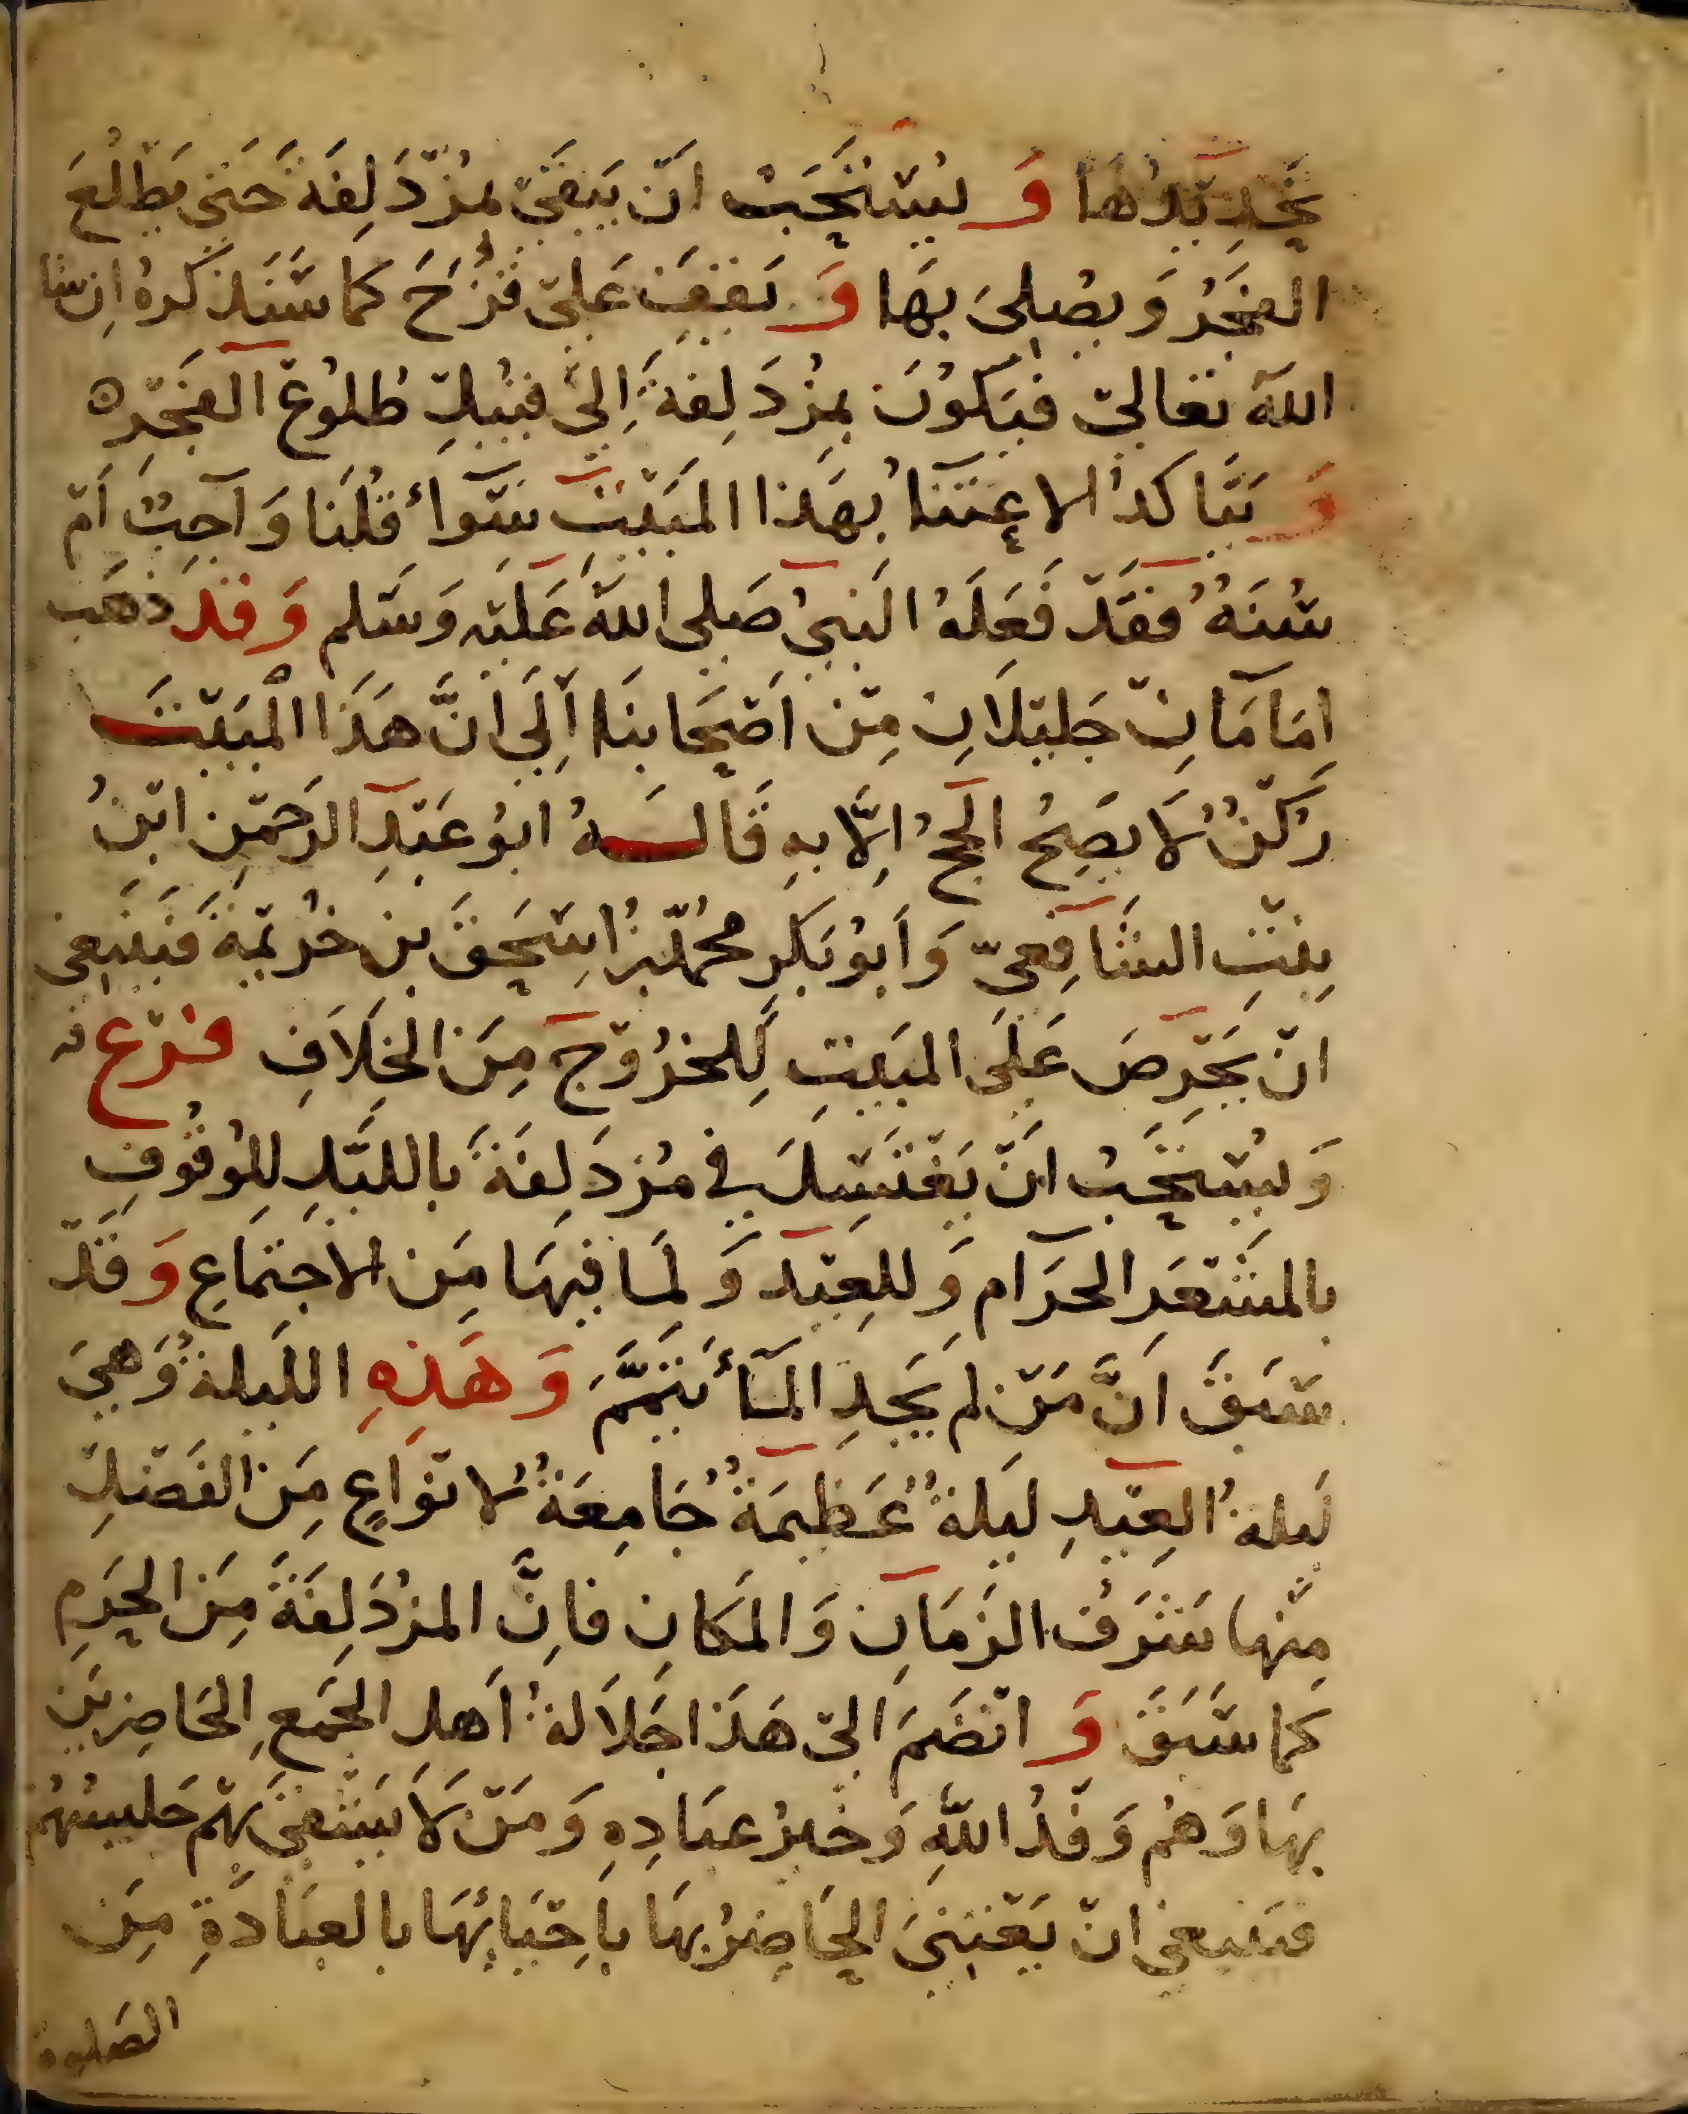 تحديدها وَيُستحَبُّ انْ يَبقى بمزْدَلِفَة حَتى يَطْلُعَ
الفجْرُ وَيصلىَ بهَا وَيَقفَ عَلى قُزَحَ كما سَنَذكرهُ اِن شا
اللهُ تعَالى فيَكوُن بمزْدَلِفة اِلى قبيْل طُلوُع الفَجْر ه
وَيَتَأكدُ الاعتنَاُ بهَذا المَبيْت سَوَأ قلنَا وَاجبٌ اَمْ
سُنَةٌ فقَدْ فَعَلَهُ النَبيُ صَلى اللهُ عَليْه وَسَلم وَقد ذهَب
اِمَامَانِ جَليْلاَن مِنْ اَصْحَابنَا اِلَى اَنَّ هَذَا المبَيْتَ
رُكنٌ لاَ يصَحُ الحَجُ اِلَّا بهِ قَالـهُ ابوُ عَبْدِ الرحَمْن ابْنُ
بِنْتِ الشَافِعيّ وَاَبوُ بَكرِ محمّد بنُ اِسْحَقَ بن خُزيْمة فيَنبَغى
انْ يحَرِصَ عَلَى المبَيتِ لِلخرُوْج مِنَ الخِلاَفِ فَرْع
وَيُسْتحَبُ انْ يَغْتَسِلَ فى مُزدَلِفَة بالليْلِ لِلوُقُوفِ
بالمشْعَرِ الحَرَام وَللعِيْد وَلمَا فيهَا مِن الاجتِمَاعِ وَقَدْ
سَبَقَ اَنَّ مَنْ لم يَجدِ المَأ تيَممَّ وَهَذِهِ الليلةُ وَهيَ
لَيلةُ العِيْدِ ليَلةٌ عَظِيمَةٌ جَامِعَةٌ لانوَاعٍ مِنَ الفَضْل
مِنْها شَرَفُ الزمَانِ وَالمكَانِ فاِنَّ المزْدَلِفَةَ مِنَ الحَرَمِ
كما سَبَقَ وَانضَم الىْ هَذَا جَلاَلةُ اَهل الجمَع الحَاضِريْن
بهَا وَهُم وَفدُ اللهِ وَخيرُ عبَادِهِ وَمَنْ لاَ يَشْقَى بهْم جَليسُهُمْ
فينبغي انْ يَعْتنيَ الحَاضِرُ بهَا بِاحْيَائهَا بالعبَادَةِ مِن
الصَلوة